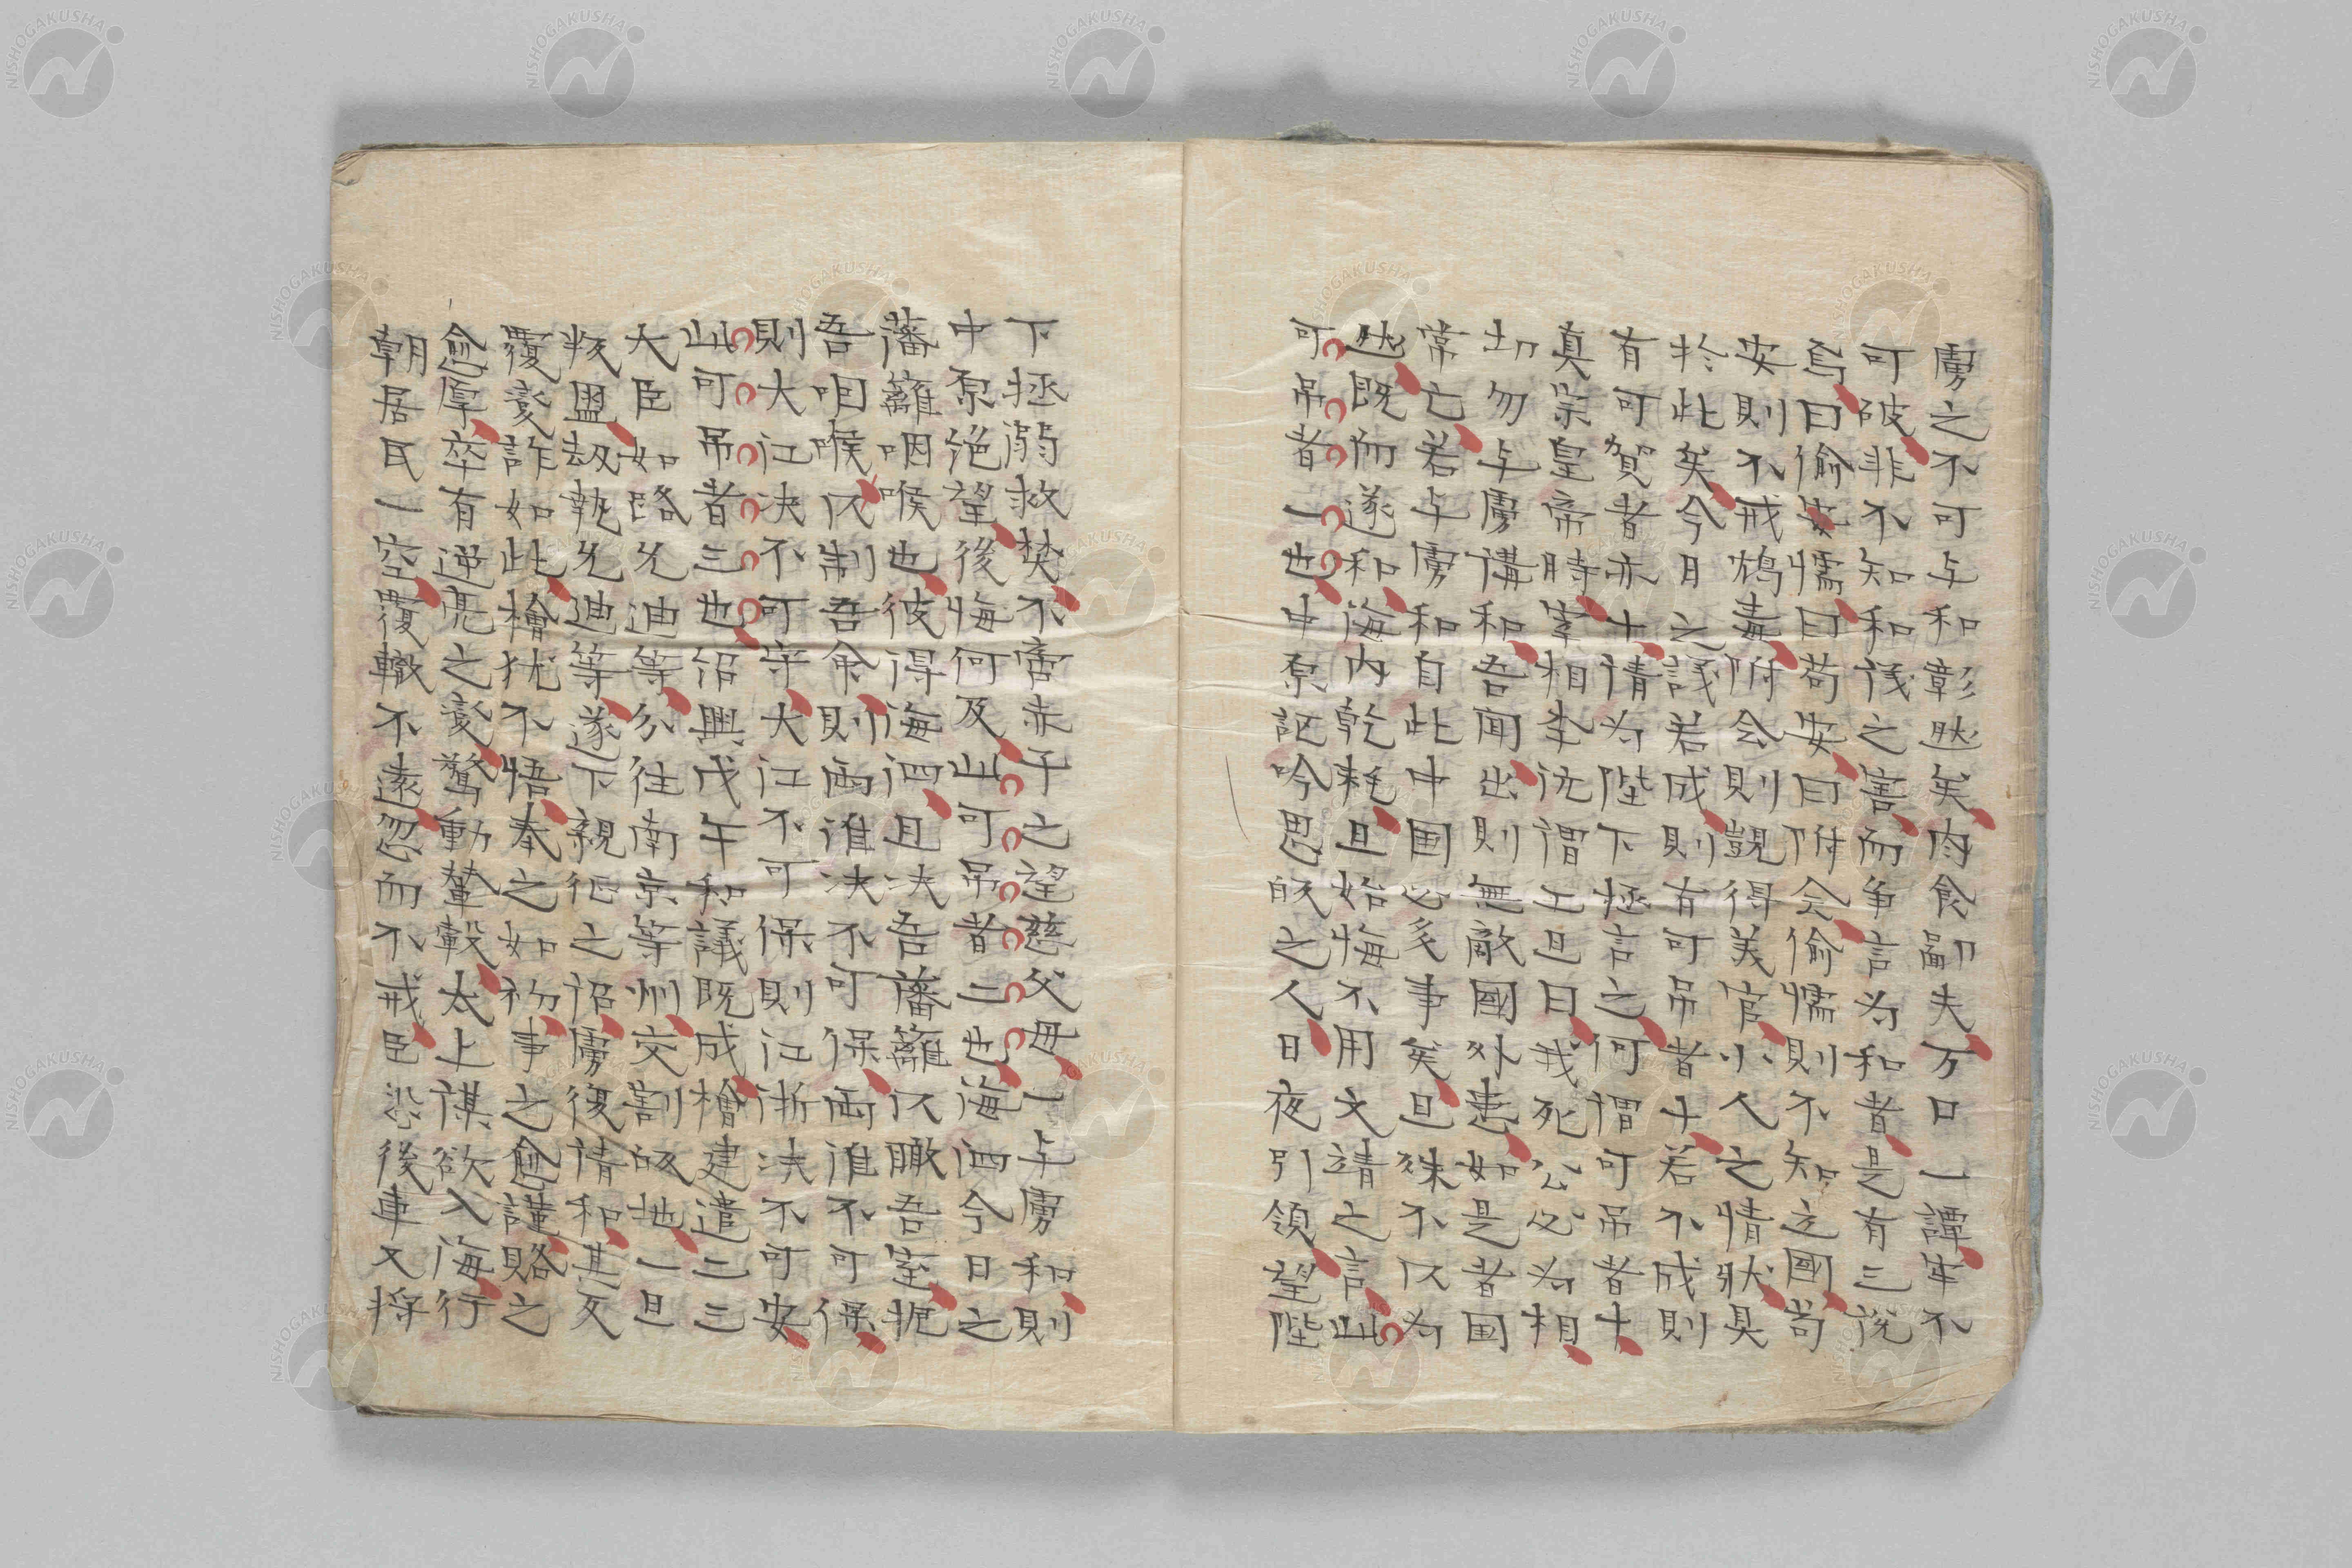 虜之不可与和彰然矣肉食鄙夫万口一譚牢不
可破非不知和議之害而争言為和者是有三説
焉曰偷安懦曰苟安曰附会偷懦則不知立國苟
安則不戒鴆毒附会則覬得美官小人之情状具
於此矣今日之議若成則有可吊者十若不成則
有可賀者亦十請為陛下極言之何謂可吊者十
真宗皇帝時宰相李沆謂王旦曰我死公必為相
切勿与虜講和吾聞出則無敵國外患如是者国
常亡若与虜和自此中国必多事矣旦殊不以為
然既而遂和海内乾耗旦始悔不用文靖之言此
可吊者一也中原謳吟思帰之人日夜引領望陛
下拯溺救焚不啻赤子之望慈父母一与虜和則
中原絶望後悔何及此可吊者二也海泗今日之
藩籬咽喉也彼得海泗且决吾藩籬以瞰吾室扼
吾咽喉以制吾命則両淮决不可保両淮不可保
則大江决不可守大江不可保則江浙决不可安
此可吊者三也紹興戊午和議既成檜建遣二三
大臣如路允迪等分往南京等州交割故地一旦
叛盟劫執允迪等遂下親征之詔虜復請和其反
覆変詐如此檜犹不悟奉之如初事之愈謹賂之
愈厚卒有逆亮之変驚動輦轂太上謀欲入海行
朝居民一空覆轍不遠忽而不戒臣恐後車又将
NISHOGAKUSHA